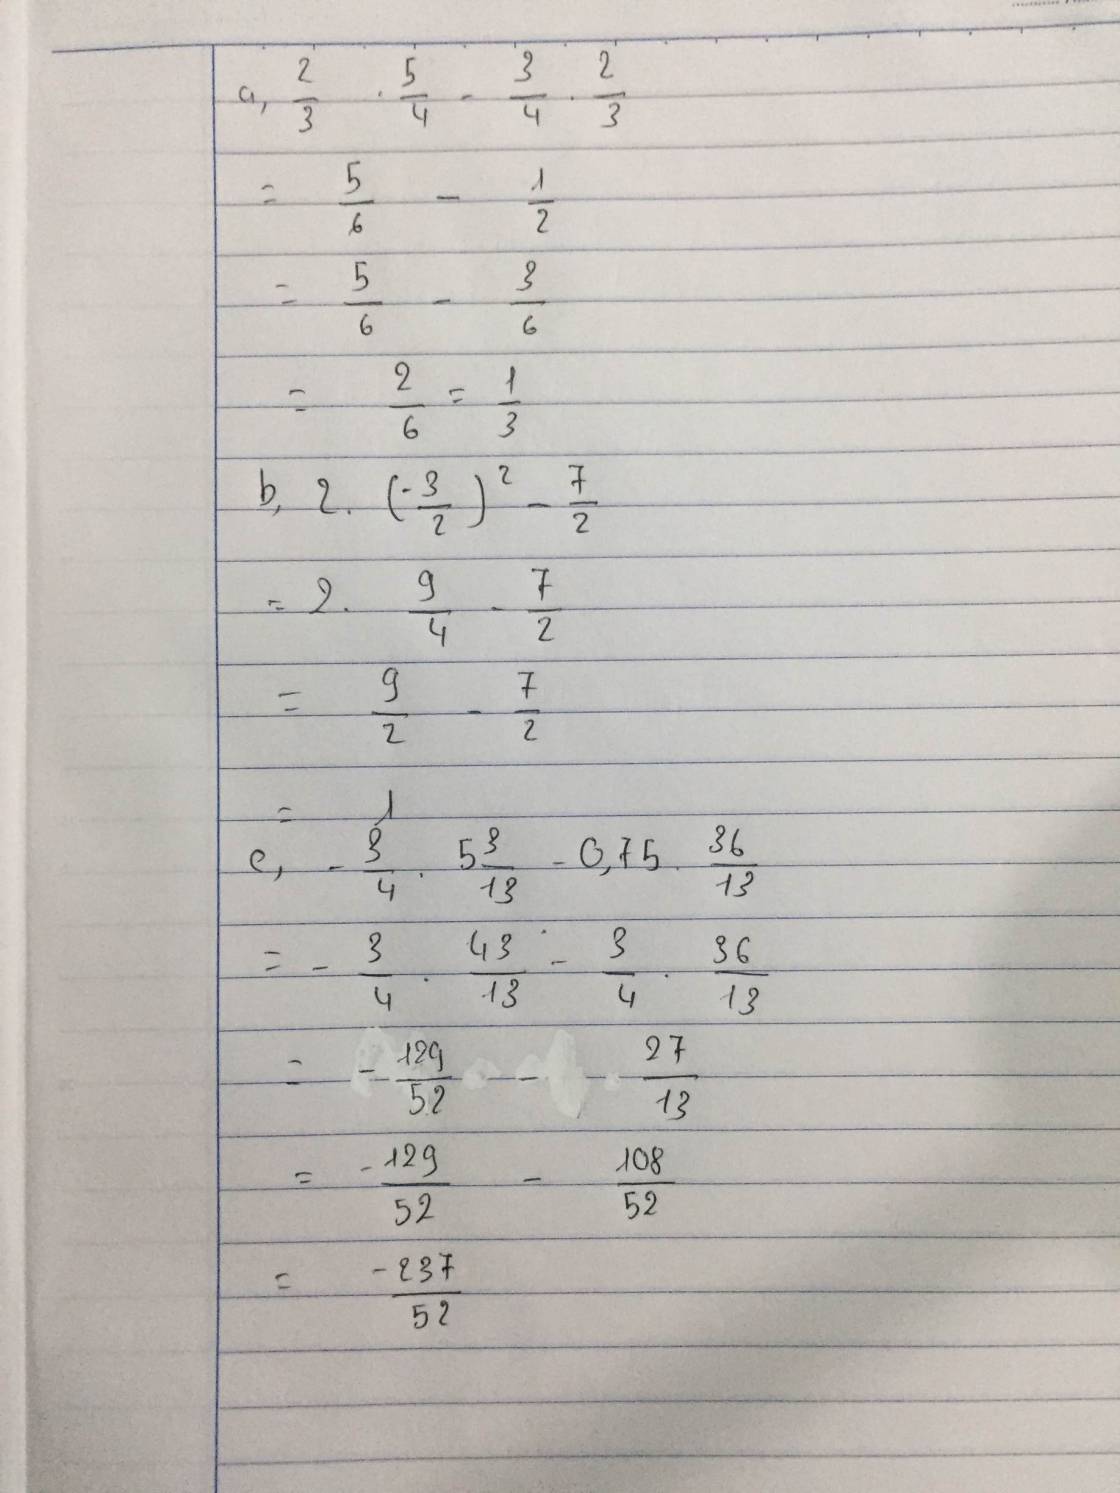 a, 2/3 . 5/4 - 3/4 . 2/3
= 5/6 - 1/2
= 5/6 - 3/6
= 2/6 = 1/3
b, 2. (-3/2)² - 7/2
= 2. 9/4 - 7/2
= 9/2 - 7/2
= 1
c, -3/4 . 5 3/13 - 0,75 . 36/13
= -3/4 . 43/13 - 3/4 . 36/13
= -129/52 - 27/13
= -129/52 - 108/52
= -237/52